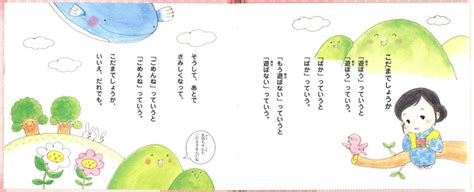 こだまでしょうか
「遊ぼう」っていうと
「遊ぼう」っていう。
「ばか」っていうと
「ばか」っていう。
「もう遊ばない」っていうと
「遊ばない」っていう。
そうして、あとで
さみしくなって、
「ごめんね」っていうと
「ごめんね」っていう。
こだまでしょうか、
いいえ、だれでも。